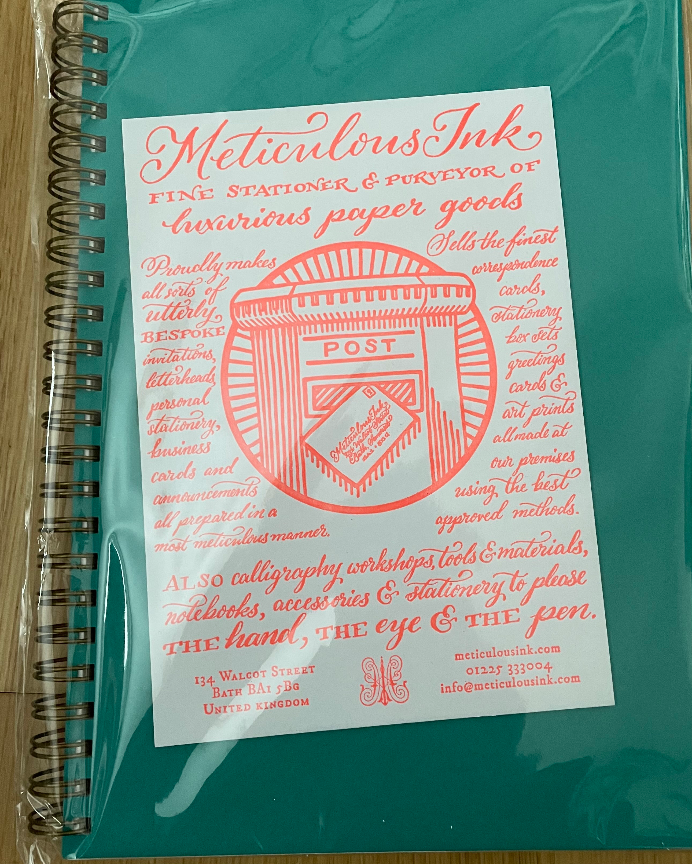 Meticulous Ink
FINE STATIONER & PURVEYOR OF
luxurious paper goods
Proudly makes
all sorts of
utterly
BESPOKE
invitations,
letterheads,
personal
stationery,
business
cards and
announcements
all prepared in a
most meticulous manner.
Sells the finest
correspondence
cards,
stationery
box sets
greetings
cards &
art prints
all made at
our premises
using the best
approved methods.
POST
Meticulous Ink
134 Walcot Street
Bath
ALSO calligraphy workshops, tools & materials,
notebooks, accessories & stationery, to please
THE hand, THE eye & THE pen.
134 Walcot Street
Bath BA1 5BG
United Kingdom
meticulousink.com
01225 333004
info@meticulousink.com